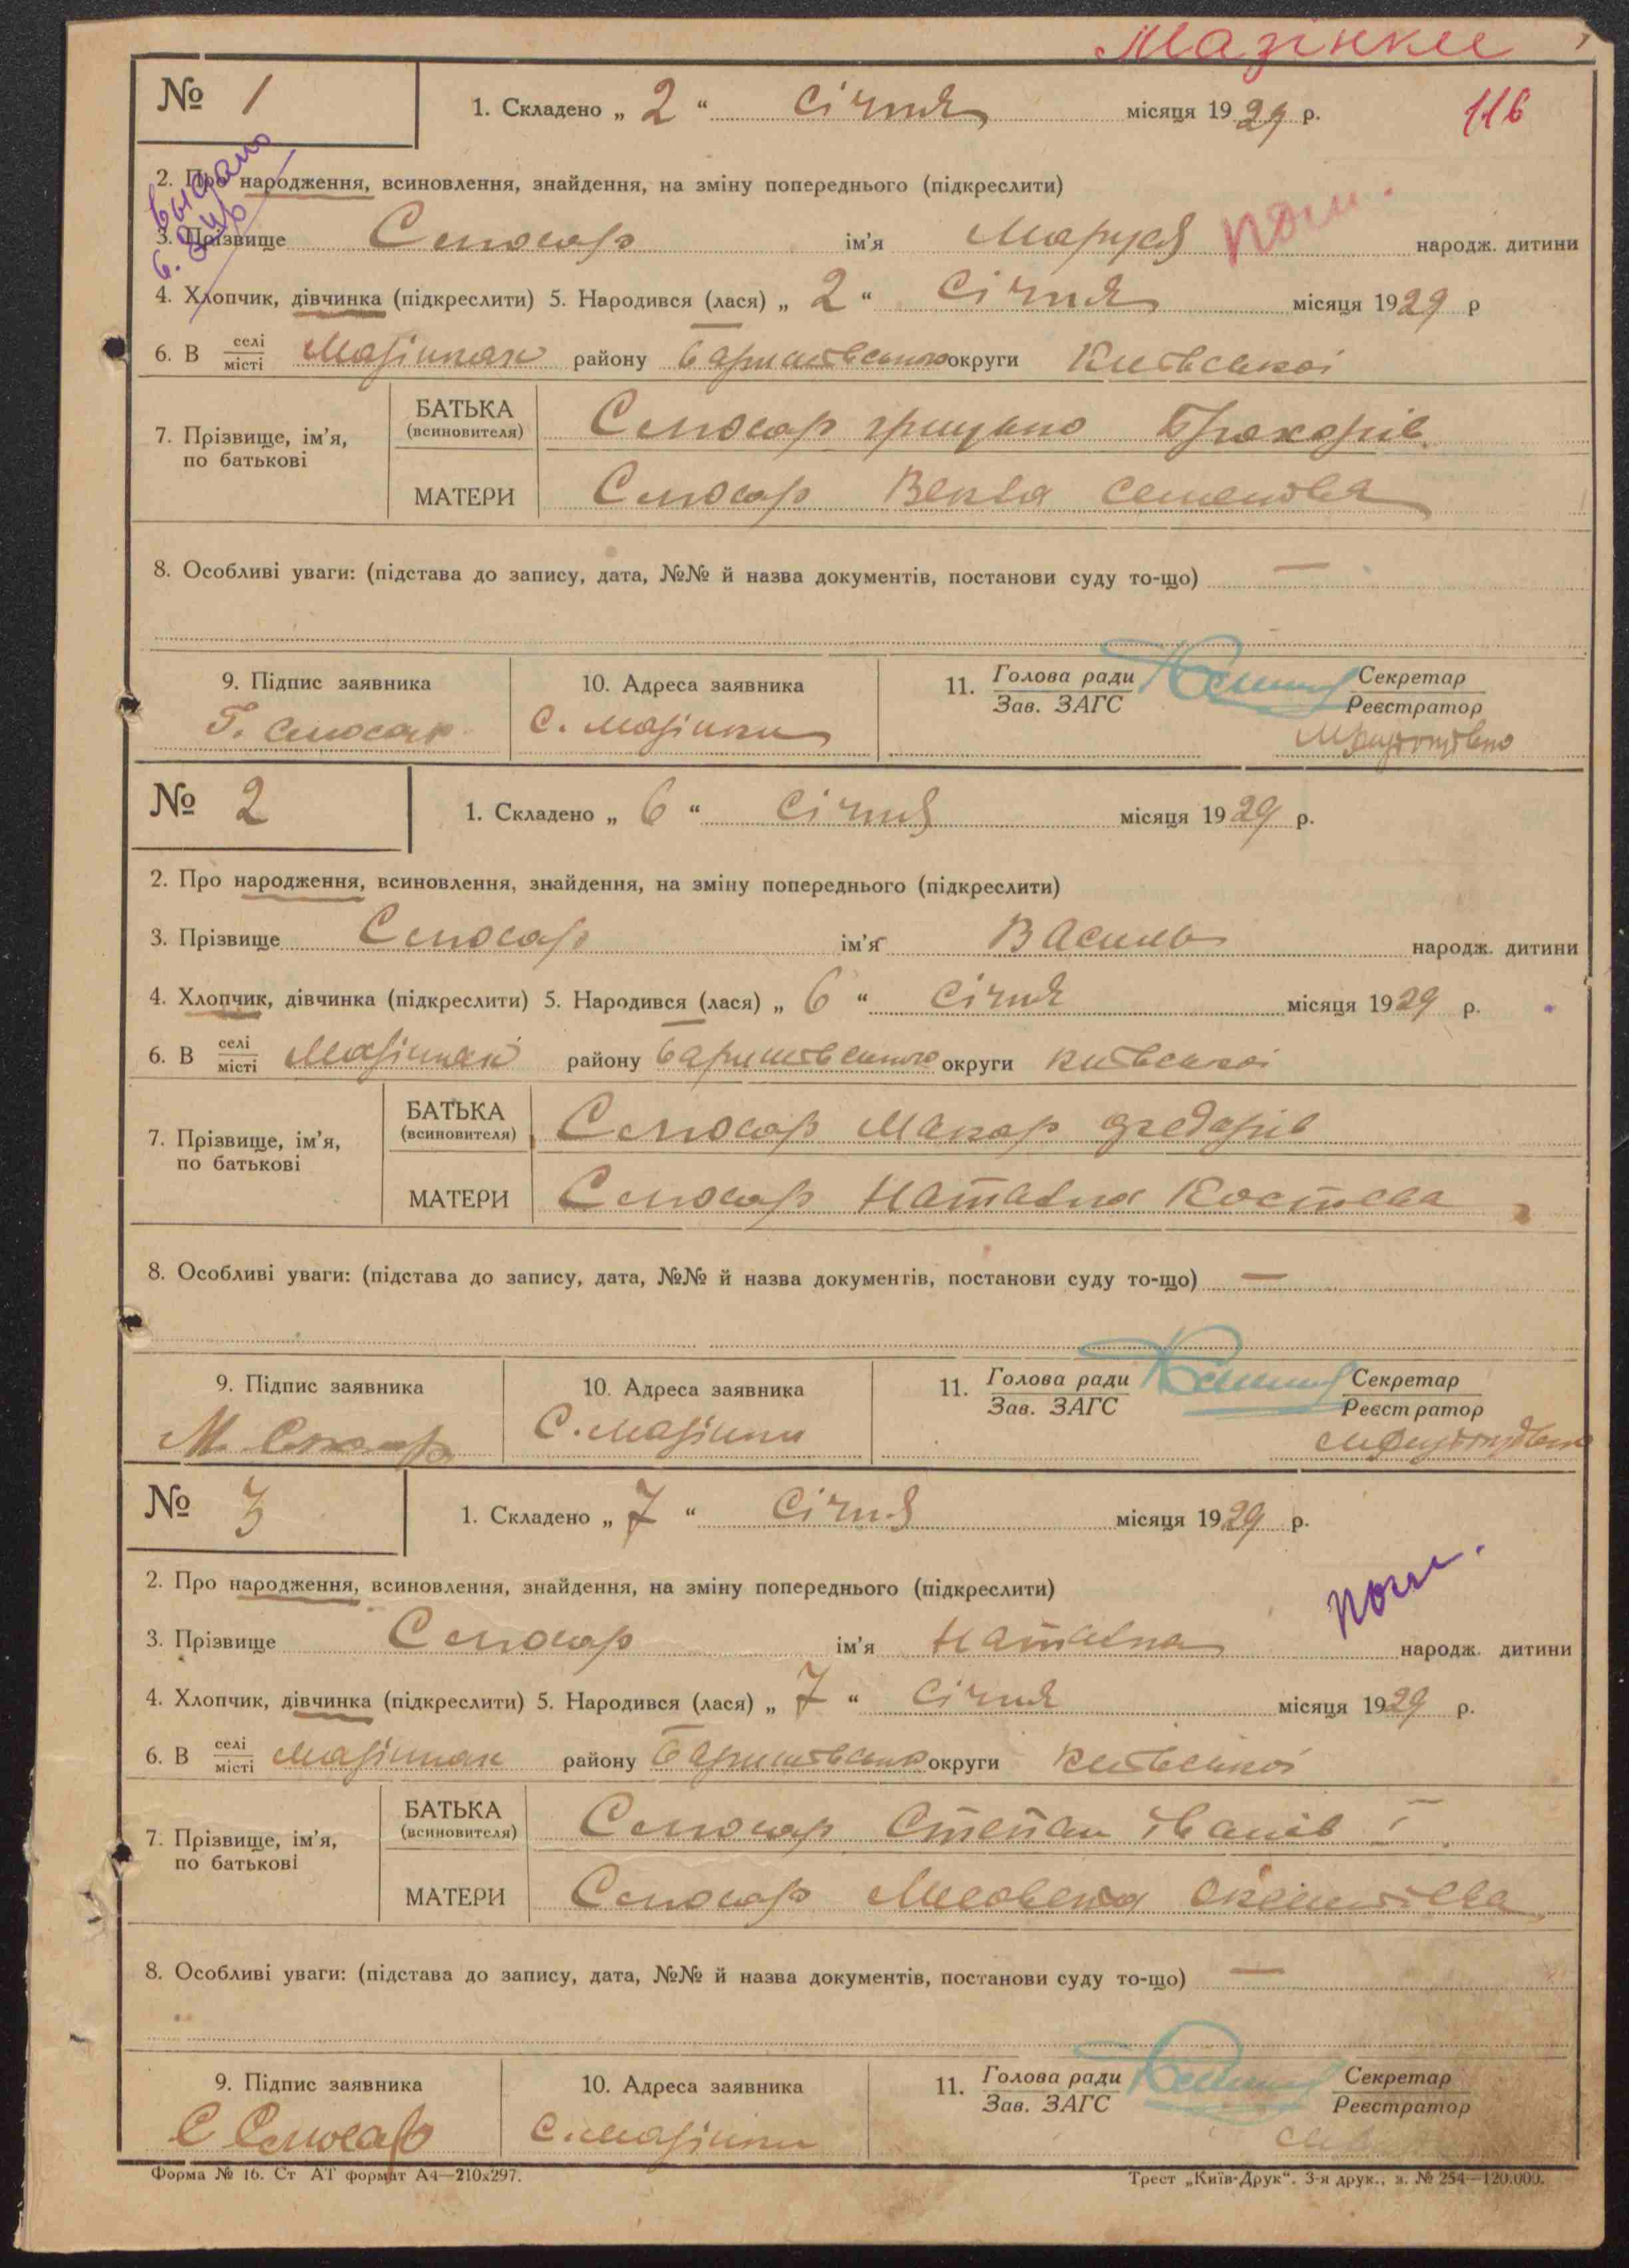 Мазінки
№ 1
1. Складено „ 2 “ січня місяця 1929 р.
116
2. Про народження, всиновлення, знайдення, на зміну попереднього (підкреслити)
3. Прізвище Слюсар ім'я Маруся народж. дитини
4. Хлопчик, дівчинка (підкреслити) 5. Народився (лася) „ 2 “ січня місяця 1929 р
6. В селі/місті Мазінках району Баришевського округи Київської
7. Прізвище, ім'я, по батькові
БАТЬКА (всиновителя) Слюсар Грицько Прохорів
МАТЕРИ Слюсар Векла Семенова
8. Особливі уваги: (підстава до запису, дата, №№ й назва документів, постанови суду то-що) —
9. Підпис заявника
10. Адреса заявника
11. Голова ради/Зав. ЗАГС
Секретар/Реєстратор
Г. Слюсар
с. Мазінки
№ 2
1. Складено „ 6 “ січня місяця 1929 р.
2. Про народження, всиновлення, знайдення, на зміну попереднього (підкреслити)
3. Прізвище Слюсар ім'я Василь народж. дитини
4. Хлопчик, дівчинка (підкреслити) 5. Народився (лася) „ 6 “ січня місяця 1929 р.
6. В селі/місті Мазінках району Баришевського округи Київської
7. Прізвище, ім'я, по батькові
БАТЬКА (всиновителя) Слюсар Макар Федорів
МАТЕРИ Слюсар Наталка Костєва
8. Особливі уваги: (підстава до запису, дата, №№ й назва документів, постанови суду то-що) —
9. Підпис заявника
10. Адреса заявника
11. Голова ради/Зав. ЗАГС
Секретар/Реєстратор
М. Слюсар
с. Мазінки
№ 3
1. Складено „ 7 “ січня місяця 1929 р.
2. Про народження, всиновлення, знайдення, на зміну попереднього (підкреслити)
3. Прізвище Слюсар ім'я Наталка народж. дитини
4. Хлопчик, дівчинка (підкреслити) 5. Народився (лася) „ 7 “ січня місяця 1929 р.
6. В селі/місті Мазінках району Баришевського округи Київської
7. Прізвище, ім'я, по батькові
БАТЬКА (всиновителя) Слюсар Степан Іванів I
МАТЕРИ Слюсар
8. Особливі уваги: (підстава до запису, дата, №№ й назва документів, постанови суду то-що) —
9. Підпис заявника
10. Адреса заявника
11. Голова ради/Зав. ЗАГС
Секретар/Реєстратор
С Слюсар
с. Мазінки
Форма № 16. Ст АТ формат А4—210х297.
Трест „Київ-Друк“. 3-я друк., з. № 254—120.000.